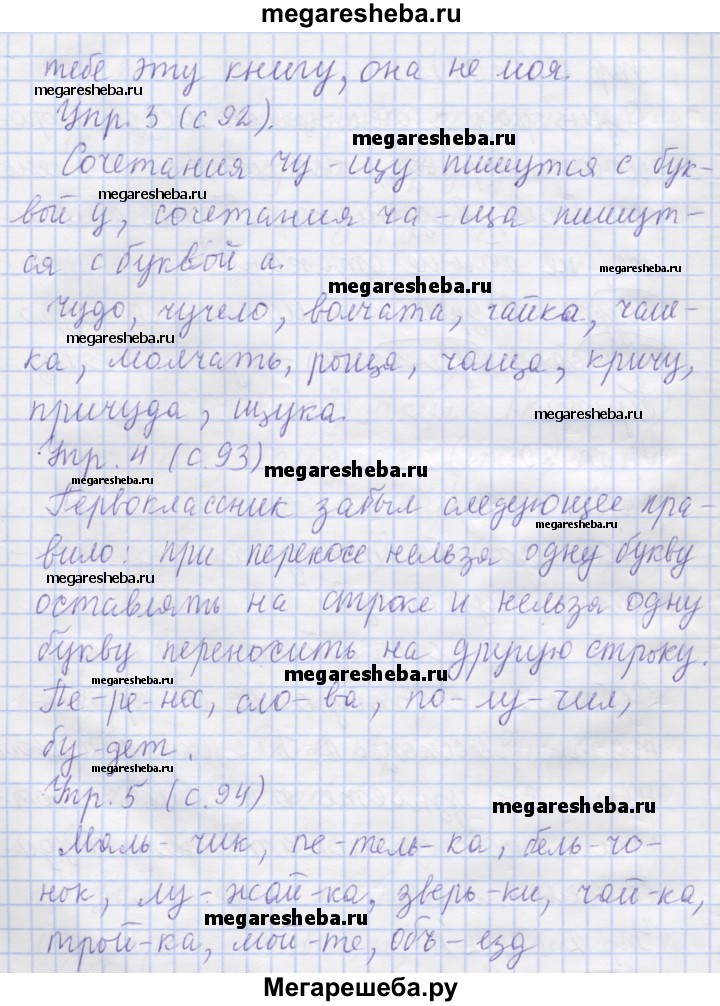 megaresheba.ru
тебе эту книгу, она не моя.
megaresheba.ru
Упр. 3 (с 92).
megaresheba.ru
Сочетания чу - щу пишутся с бук-
megaresheba.ru
вой у, сочетания ча - ща пишут-
ся с буквой а.
megaresheba.ru
megaresheba.ru
Чудо, чучело, волчата, чайка, чаш-
megaresheba.ru
ка, молчать, роща, чаща, кричу,
причуда, щука.
megaresheba.ru
Упр. 4 (с. 93)
megaresheba.ru
megaresheba.ru
Первоклассник забыл следующее пра-
megaresheba.ru
вило: при переносе нельзя одну букву
megaresheba.ru
оставлять на строке и нельзя одну
букву переносить на другую строку.
megaresheba.ru
megaresheba.ru
Пе-ре-нос, сло-ва, по-лу-чил,
megaresheba.ru
бу-дет.
megaresheba.ru
Упр. 5 (с. 94)
megaresheba.ru
Маль-чик, пе-тель-ка, бель-чо-
нок, лу-жай-ка, зверь-ки, чай-ка,
megaresheba.ru
трой-ка, мой-те, объ-езд
Мегарешеба.ру